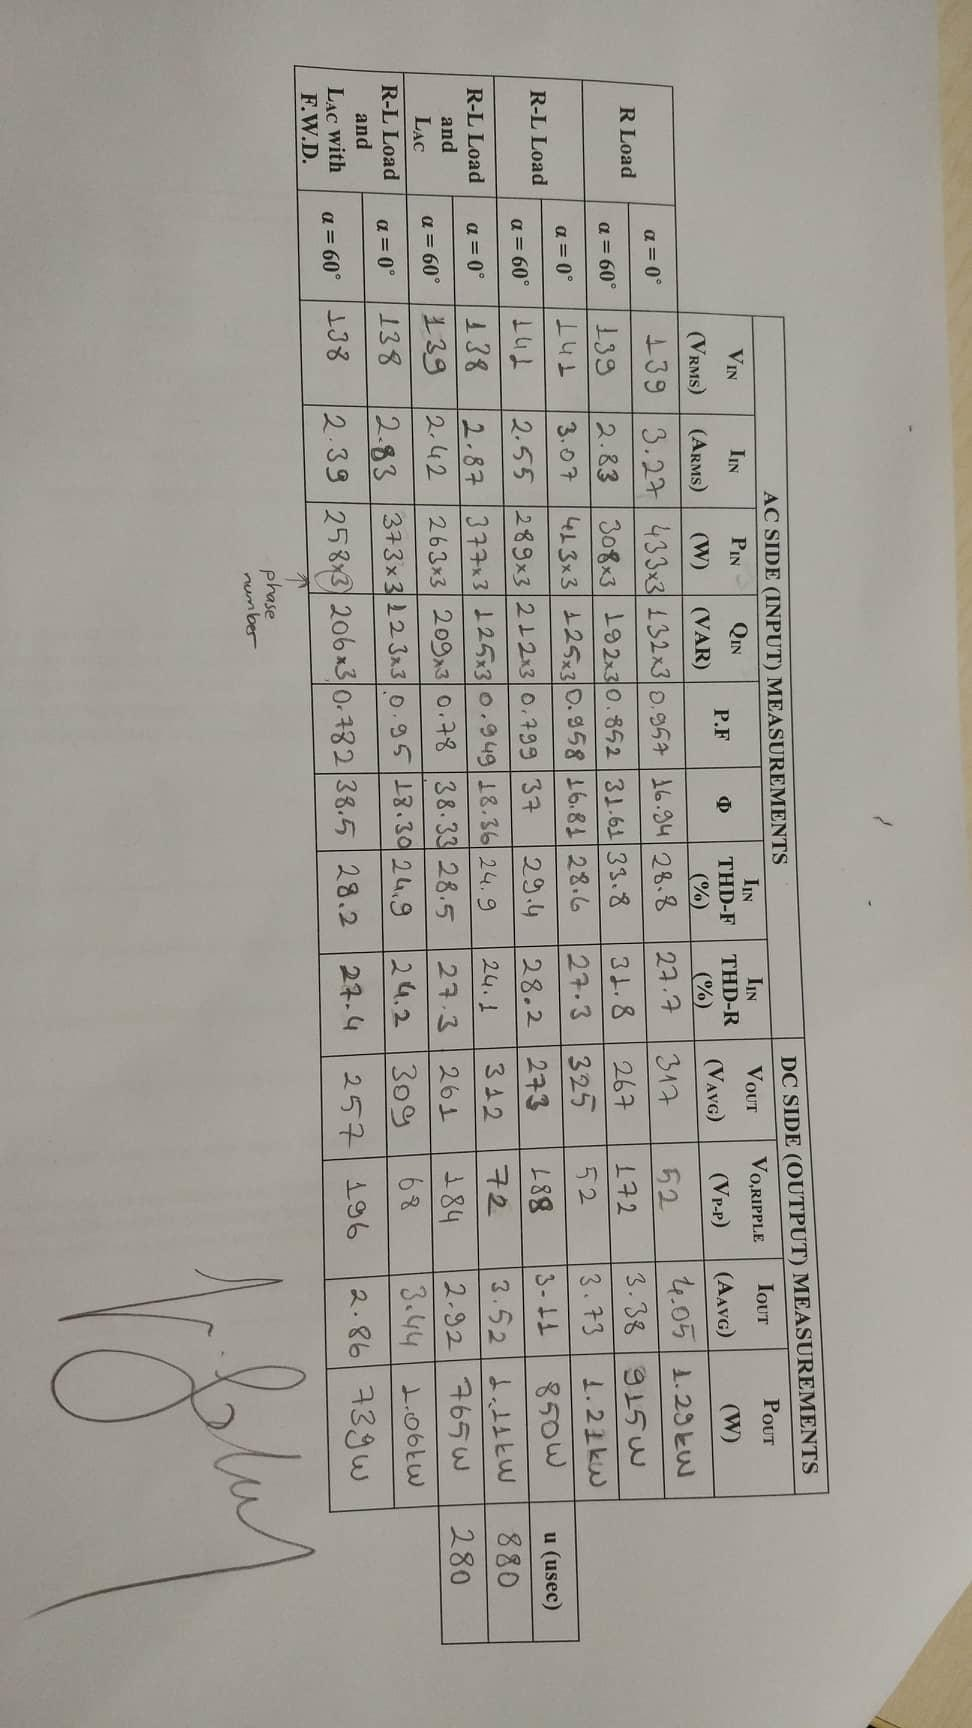 AC SIDE (INPUT) MEASUREMENTS DC SIDE (OUTPUT) MEASUREMENTS
VIN (VRMS) IIN (ARMS) PIN (W) QIN (VAR) P.F Φ IIN THD-F (%) IIN THD-R (%) VOUT (VAVG) VO,RIPPLE (VP-P) IOUT (AAVG) POUT (W)
R Load α = 0° 139 3.27 433x3 132x3 0.957 16.94 28.8 27.7 317 52 4.05 1.29kW
α = 60° 139 2.83 308x3 192x3 0.852 31.61 33.8 31.8 267 172 3.38 915W
R-L Load α = 0° 141 3.07 413x3 125x3 0.958 16.81 28.6 27.3 325 52 3.73 1.21kW
α = 60° 141 2.55 289x3 212x3 0.799 37 29.4 28.2 273 188 3.11 850W u (usec)
R-L Load and LAC α = 0° 138 2.87 377x3 125x3 0.949 18.36 24.9 24.1 312 72 3.52 1.11kW 880
α = 60° 139 2.42 263x3 209x3 0.78 38.33 28.5 27.3 261 184 2.92 765W 280
R-L Load and LAC with F.W.D. α = 0° 138 2.83 373x3 123x3 0.95 18.30 24.9 24.2 309 68 3.44 1.06kW
α = 60° 138 2.39 258x3 206x3 0.782 38.5 28.2 27.4 257 196 2.86 739W
phase
number